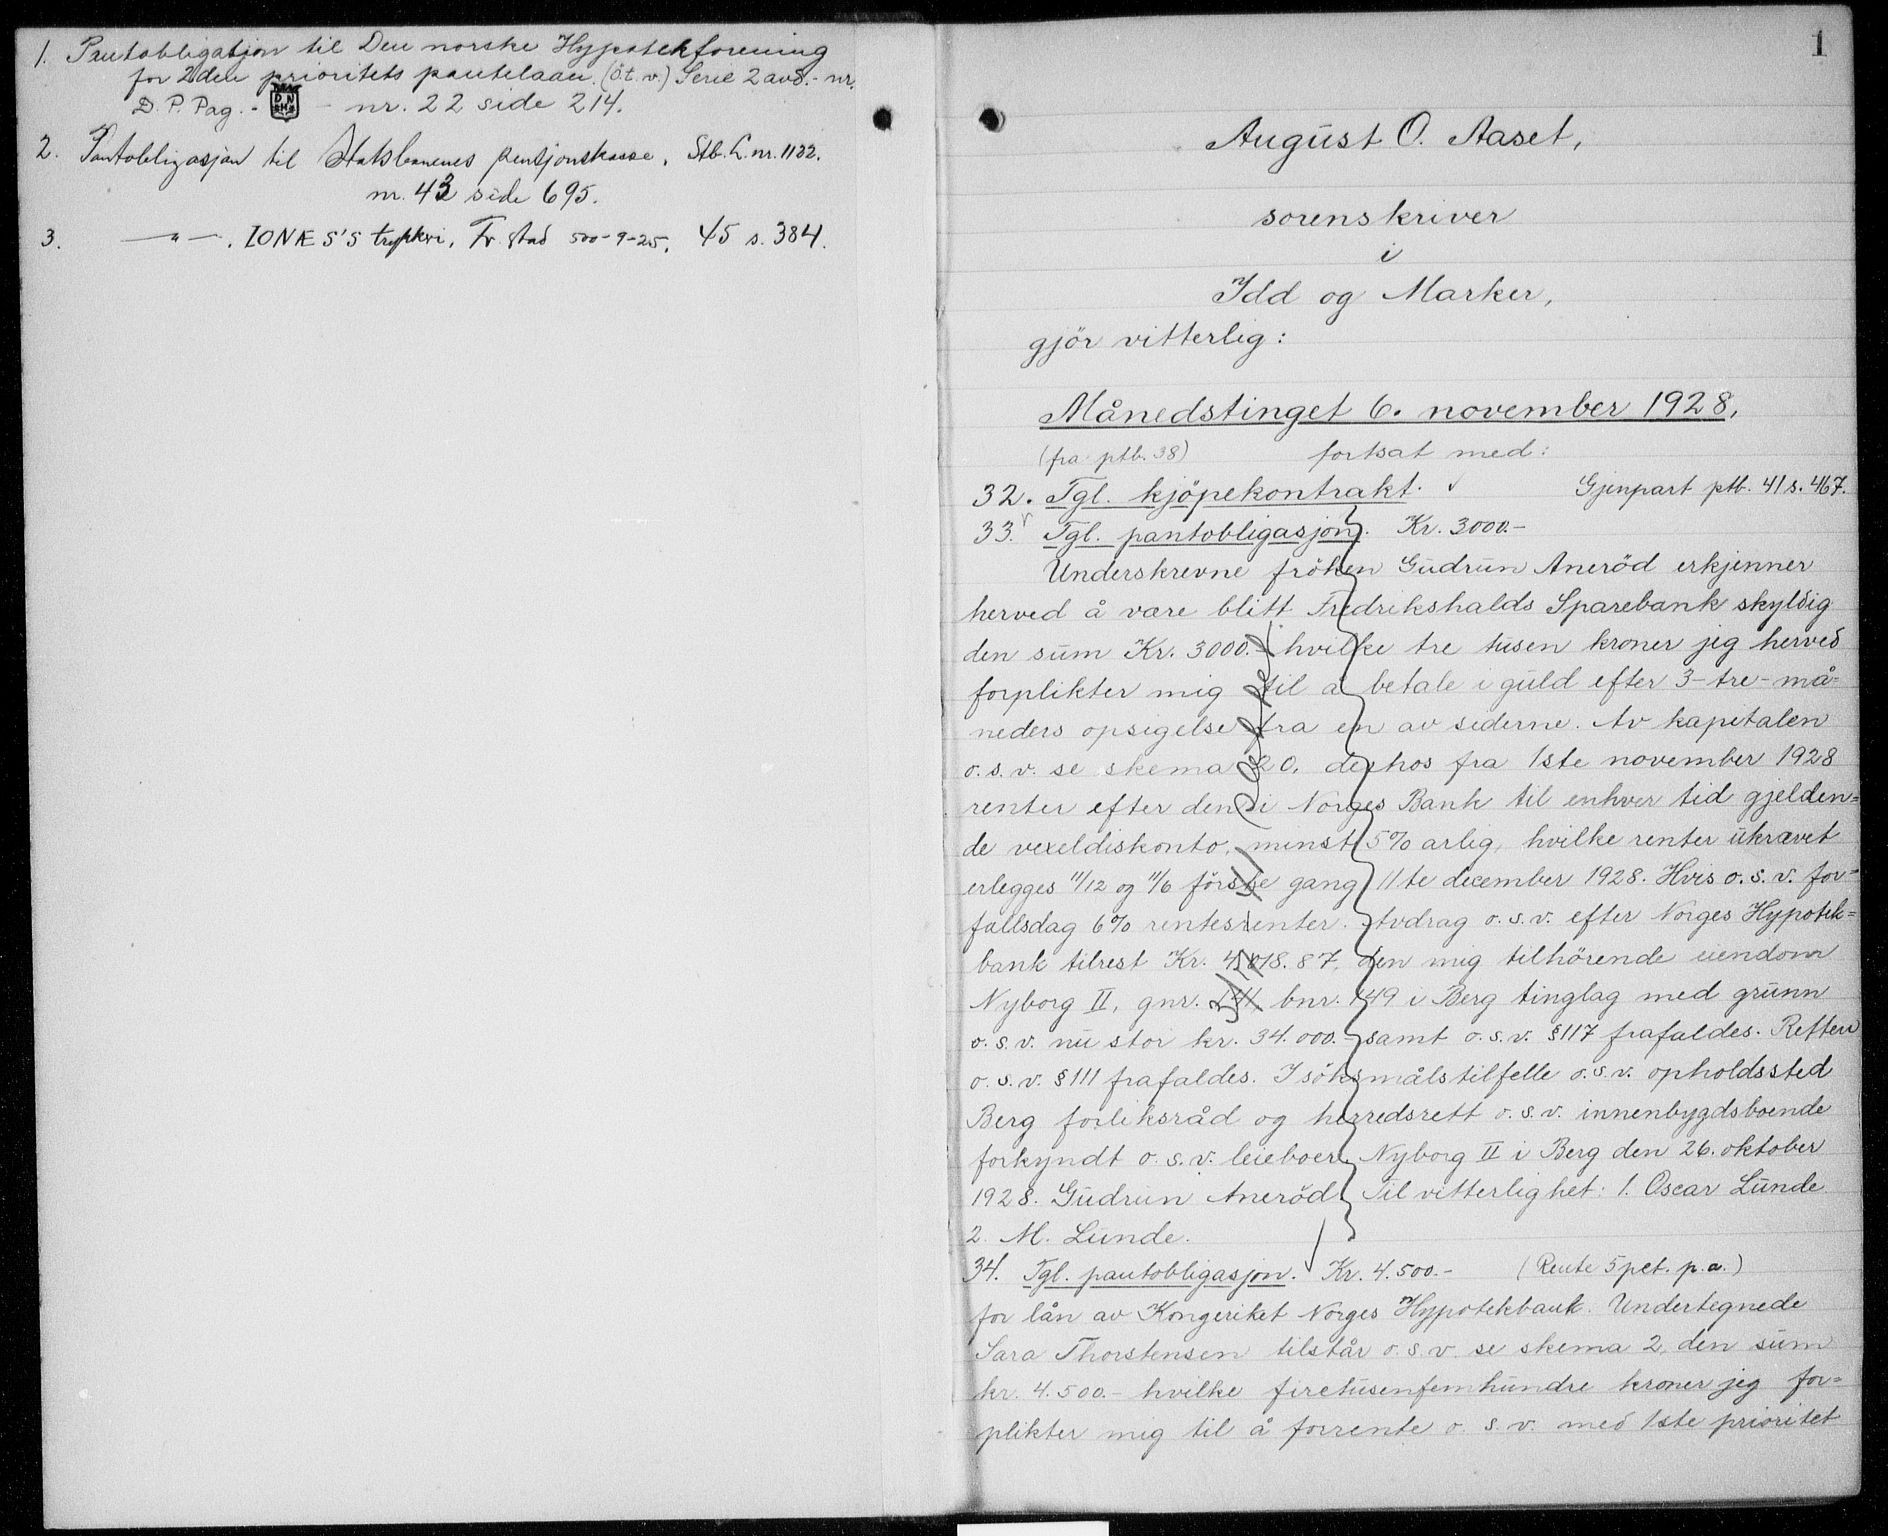 1. Pantobligation til Den norske Hypotekforening
for 2den prioritets pantelaan. (Ö.t.v.) Serie 2 avd. - nr.
D. P. Pag. - DN - nr. 22 side 214.
2. Pantobligasjon til Statsbanenes pensjonskasse. Stb. L. nr. 1132.
nr. 43 side 695.
3. —"—. IONÆS'S trykkeri, Fr.stad 500-9-25. 45 s. 384.
1
August O. Aaset,
sorenskriver
i
Idd og Marker,
gjör vitterlig:
Månedstinget 6. november 1928,
(fra ptb. 38) fortsat med:
32. Tgl. kjöpekontrakt. Gjenpart ptb. 41 s. 467.
33. Tgl. pantobligasjon. Kr. 3000.-
Underskrevne fröken Gudrun Aneröd erkjenner
herved å være blitt Fredrikshalds Sparebank skyldig
den sum Kr. 3000.- hvilke tre tusen kroner jeg herved
forplikter mig til å betale i guld efter 3- tre- må-
neders opsigelse fra en av siderne. Av kapitalen
o. s. v. se skema 20. derhos fra 1ste november 1928
renter efter den i Norges Bank til enhver tid gjelden=
de vexeldiskonto, minst 5% arlig, hvilke renter ukrævet
erlegges 11/12 og 11/6 förste gang 11te december 1928. Hvis o. s. v. for=
fallsdag 6% rentesrenter. Avdrag o. s. v. efter Norges Hypotek=
bank tilrest Kr. 4818.87, den mig tilhörende eiendom
Nyborg II, gnr. 141, bnr. 149 i Berg tinglag med grunn
o. s. v. nu stor kr. 34.000.- samt o. s. v. § 117 frafaldes. Retten
o. s. v. § 111 frafaldes. I söksmålstilfelle o. s. v. opholdssted
Berg forliksråd og herredsrett o. s. v. innenbygdsboende
forkyndt o. s. v. leieboer. Nyborg II i Berg den 26. oktober
1928. Gudrun Aneröd. Til vitterlighet: 1. Oscar Lunde
2. M. Lunde.
34. Tgl. pantobligasjon. Kr. 4.500.- (Rente 5 pct. p. a.)
for lån av Kongeriket Norges Hypotekbank. Undertegnede
Sara Thorstensen tilstår o. s. v. se skema 2, den sum
kr. 4.500.- hvilke firetusenfemhundre kroner jeg for=
plikter mig til å forrente o. s. v. med 1ste prioritet